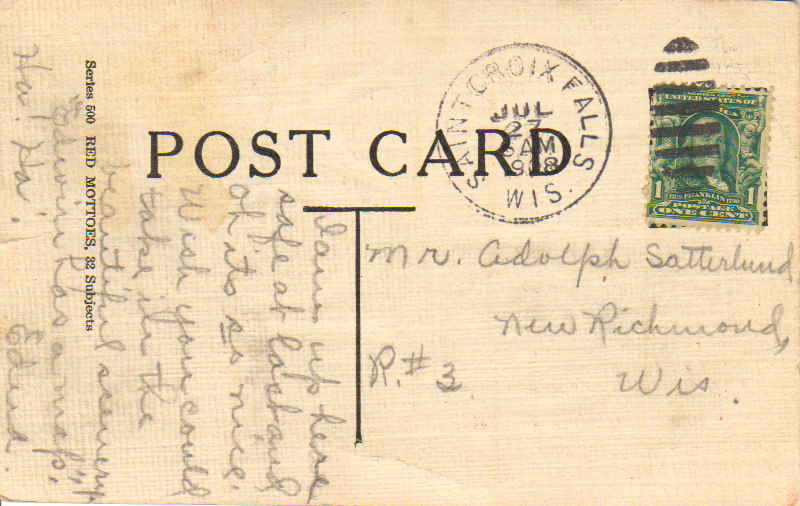 POST CARD
SAINT CROIX FALLS
JUL
27
AM
1908
WIS.
UNITED STATES OF
FRANKLIN
1 1
POSTAGE
ONE CENT
Mr. Adolph Satterlund
New Richmond,
R. # 3. Wis.
Series 500 RED MOTTOES, 32 Subjects
I am up here
safe at last and
oh its so nice.
Wish you could
take in the
beautiful scenery
"Edwin has a map."
Ha! Ha! Edna.